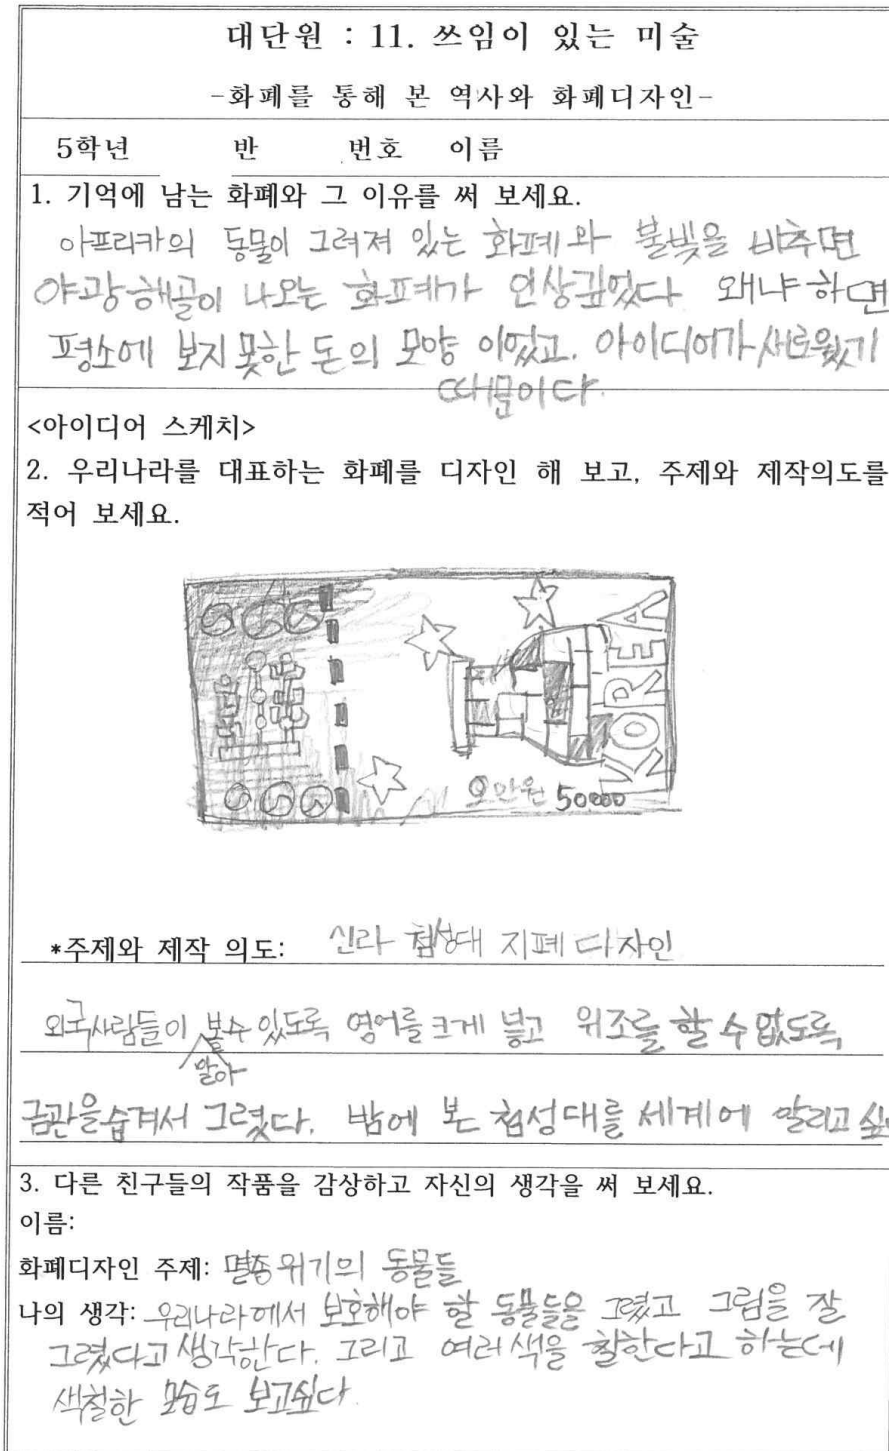 대단원 : 11. 쓰임이 있는 미술
-화폐를 통해 본 역사와 화폐디자인-
5학년 반 번호 이름
1. 기억에 남는 화폐와 그 이유를 써 보세요.
아프리카의 동물이 그려져 있는 화폐와 불빛을 비추면
야광해골이 나오는 화폐가 인상깊었다 왜냐하면
평소에 보지못한 돈의 모양 이었고, 아이디어가 새로웠기
때문이다.
<아이디어 스케치>
2. 우리나라를 대표하는 화폐를 디자인 해 보고, 주제와 제작의도를
적어 보세요.
KOREA
오만원 50000
*주제와 제작 의도: 신라 첨성대 지폐 디자인
외국사람들이 볼수 있도록 영어를 크게 넣고 위조를 할 수 없도록
알아
금관을 숨겨서 그렸다. 밤에 본 첨성대를 세계에 알리고 싶
3. 다른 친구들의 작품을 감상하고 자신의 생각을 써 보세요.
이름:
화폐디자인 주제: 멸종위기의 동물들
나의 생각: 우리나라에서 보호해야 할 동물들을 그렸고 그림을 잘
그렸다고 생각한다. 그리고 여러색을 칠한다고 하는데
색칠한 모습도 보고싶다.